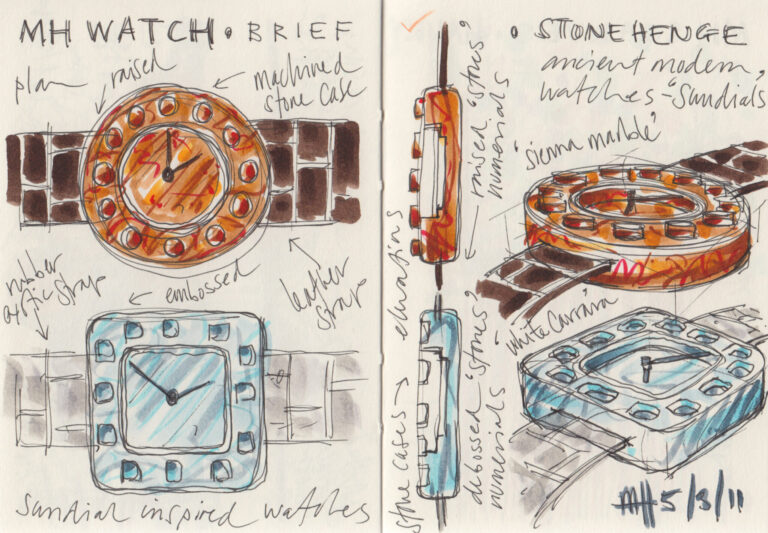 MH WATCH • BRIEF
plan
raised
machined
stone case
rubber
strap
embossed
leather
strap
sundial inspired watches
• STONEHENGE
ancient modern
watches - "sundials"
raised "stones"
numerials
"sienna marble"
elevations
stone cases →
debossed "stones"
numerials
white Carrara
MH 5/3/11